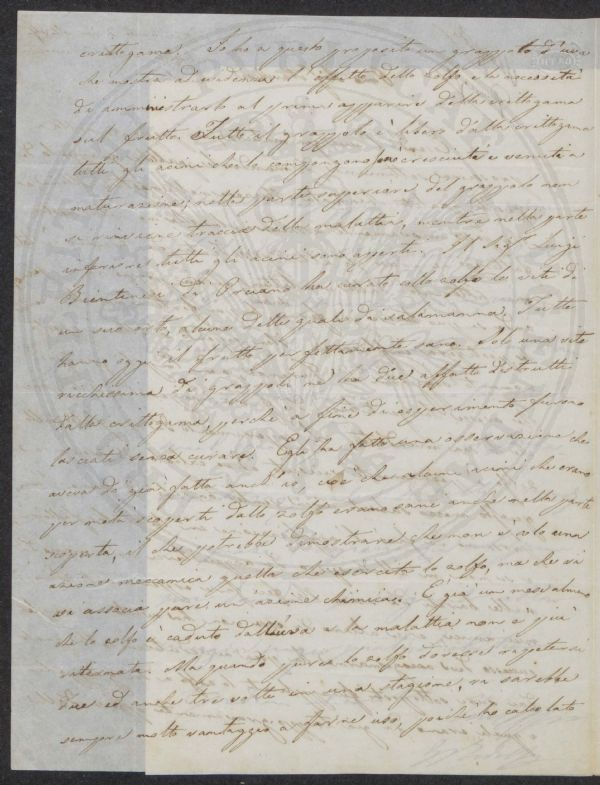 crittogama. Io ho a questo proposito un grappolo d'uva
che mostra ad evidenza l'effetto dello zolfo e la necessità
di amministrarlo al primo apparire della crittogama
sul frutto. Tutto il grappolo è libero dalla crittogama
tutti gli acini che lo compongono son cresciuti e venuti a
maturazione; nella parte superiore del grappolo non
si rinviene traccia della malattia, mentre nella parte
inferiore tutti gli acini sono aperti. Il Sigr. Luigi
Bientinesi in Orciano ha curato collo zolfo le viti di
un suo orto, alcune delle quali di salamanna. Tutte
hanno oggi il frutto perfettamente sano. Solo una vite
ricchissima di grappoli ne ha due affatto distrutti
dalla crittogama, perchè a fine di esperimento furono
lasciati senza curare. Egli ha fatto una osservazione che
aveva di già fatta anch'io, cioè che alcuni acini che erano
per metà scoperti dallo zolfo erano sani anche nella parte
scoperta, il che potrebbe dimostrare che non è solo una
azione meccanica quella che esercita lo zolfo, ma che vi
si associa pure un'azione chimica. È già un mese almeno
che lo zolfo è caduto dall'uva e la malattia non è più
ritornata. Ma quando pure lo zolfo dovesse ripetersi
due ed anche tre volte in una stagione, vi sarebbe
sempre molto vantaggio a farne uso, poichè ho calcolato